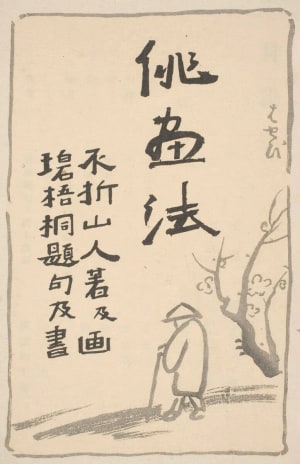 俳畫法
不折山人著及画
碧梧桐題句及書